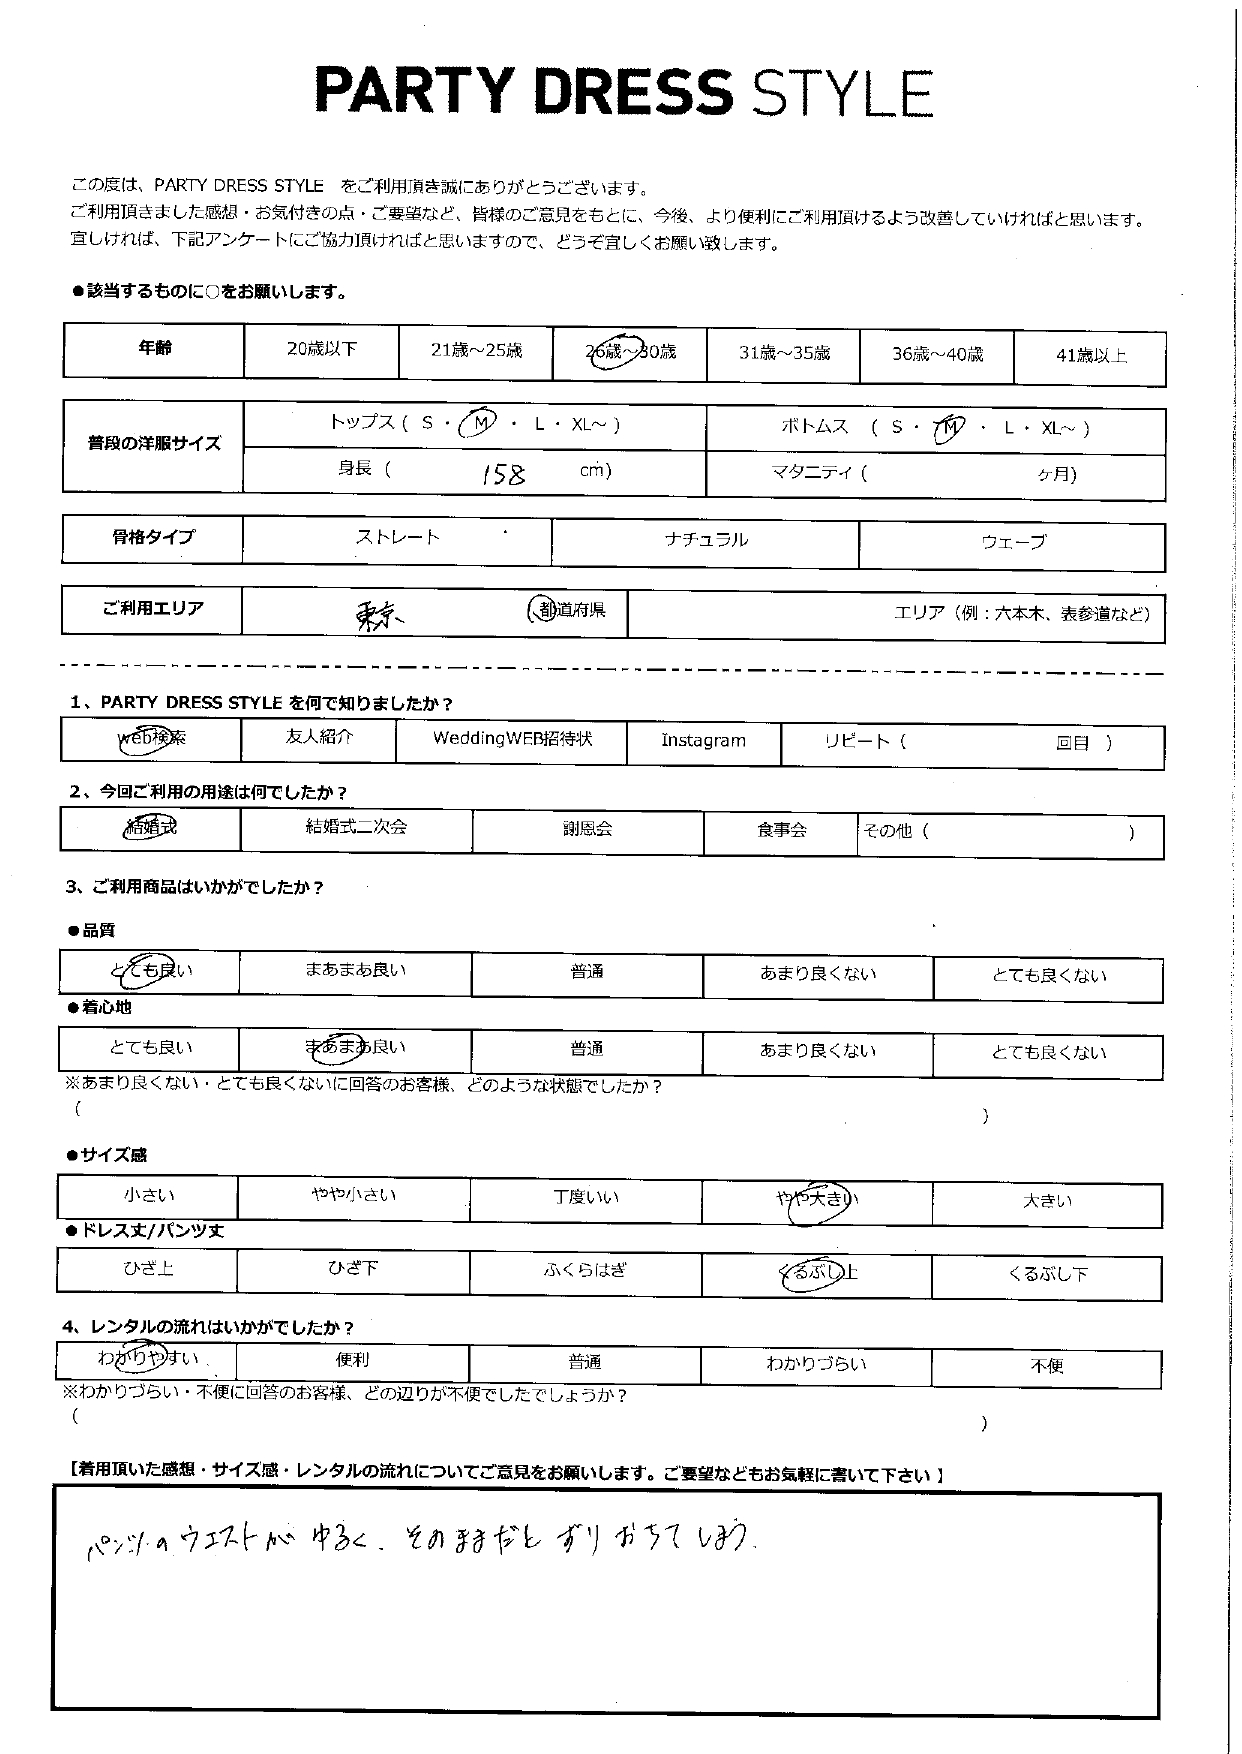 PARTY DRESS STYLE
この度は、PARTY DRESS STYLE をご利用頂き誠にありがとうございます。
ご利用頂きました感想・お気付きの点・ご要望など、皆様のご意見をもとに、今後、より便利にご利用頂けるよう改善していければと思います。
宜しければ、下記アンケートにご協力頂ければと思いますので、どうぞ宜しくお願い致します。
●該当するものに○をお願いします。
年齢 20歳以下 21歳～25歳 26歳～30歳 31歳～35歳 36歳～40歳 41歳以上
普段の洋服サイズ
トップス ( S ・ M ・ L ・ XL～ ) ボトムス ( S ・ M ・ L ・ XL～ )
身長 ( 158 cm) マタニティ ( ヶ月)
骨格タイプ ストレート ナチュラル ウェーブ
ご利用エリア 東京 都道府県 エリア（例：六本木、表参道など）
1、PARTY DRESS STYLE を何で知りましたか？
web検索 友人紹介 WeddingWEB招待状 Instagram リピート ( 回目 )
2、今回ご利用の用途は何でしたか？
結婚式 結婚式二次会 謝恩会 食事会 その他 ( )
3、ご利用商品はいかがでしたか？
●品質
とても良い まあまあ良い 普通 あまり良くない とても良くない
●着心地
とても良い まあまあ良い 普通 あまり良くない とても良くない
※あまり良くない・とても良くないに回答のお客様、どのような状態でしたか？
( )
●サイズ感
小さい やや小さい 丁度いい やや大きい 大きい
●ドレス丈/パンツ丈
ひざ上 ひざ下 ふくらはぎ くるぶし上 くるぶし下
4、レンタルの流れはいかがでしたか？
わかりやすい 便利 普通 わかりづらい 不便
※わかりづらい・不便に回答のお客様、どの辺りが不便でしたでしょうか？
( )
【着用頂いた感想・サイズ感・レンタルの流れについてご意見をお願いします。ご要望などもお気軽に書いて下さい 】
パンツのウエストがゆるく、そのままだとずりおちてしまう.